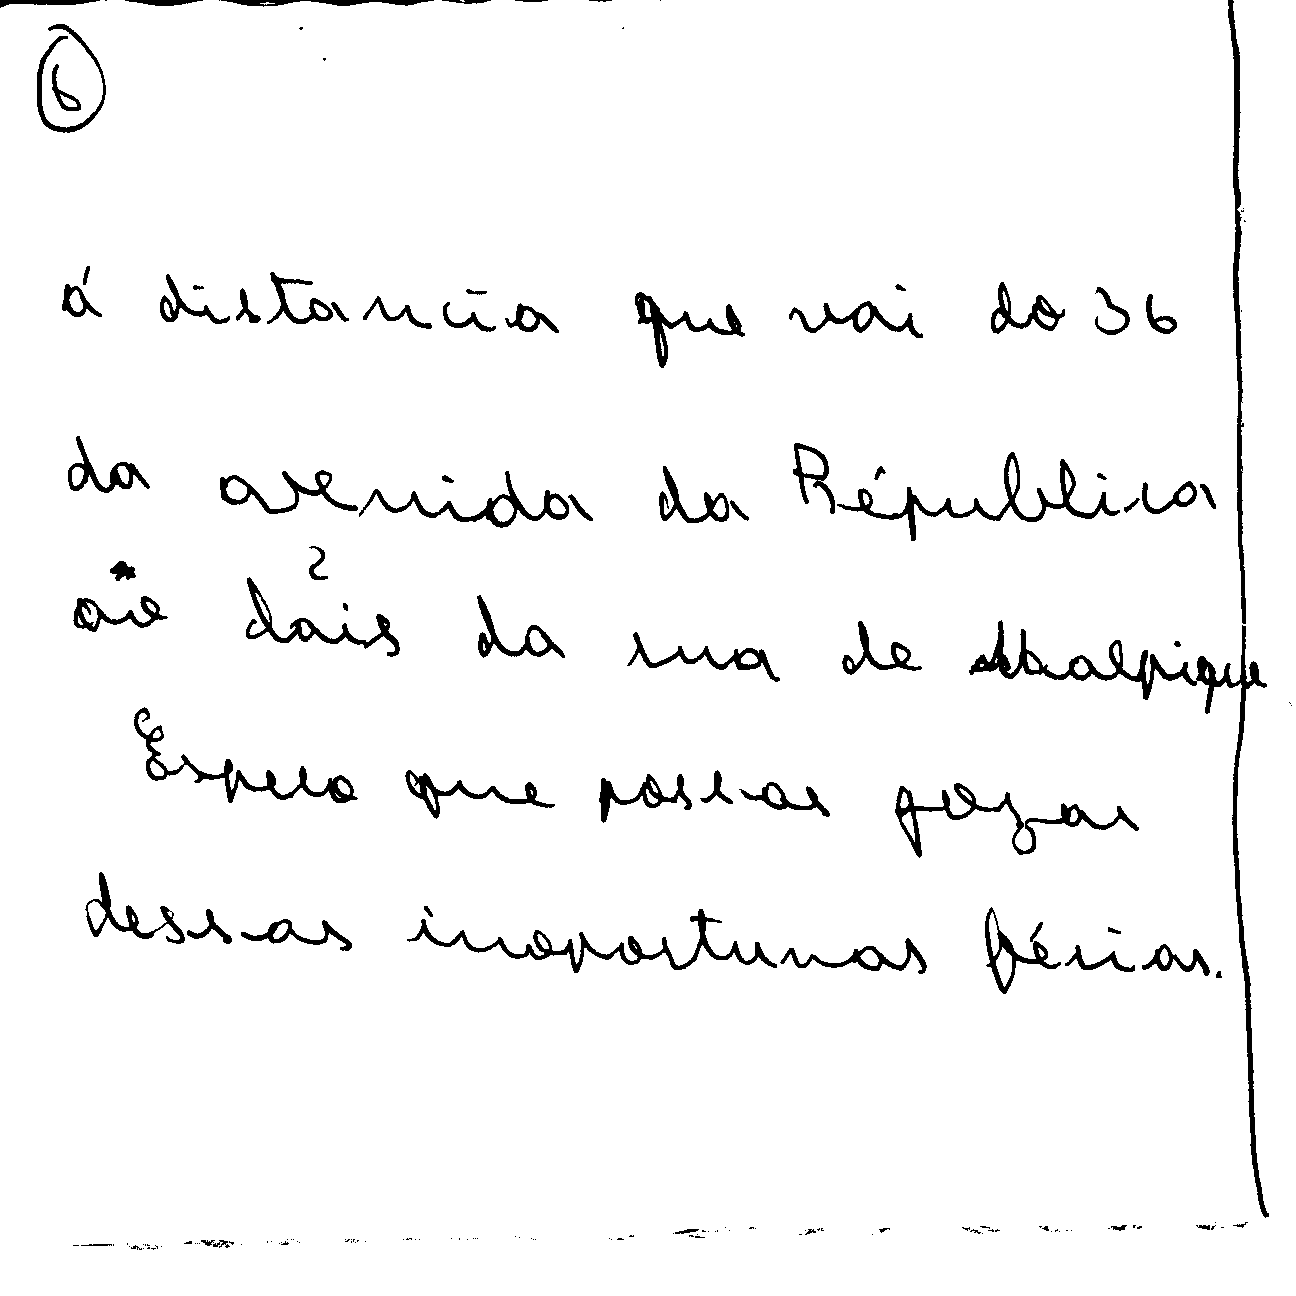 6
á distancia que vai do 36
da avenida da Républica
2
dois da rua de
Espero que possas gozar
dessas inoportunas férias.